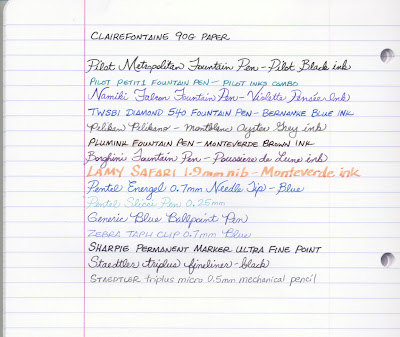 CLAIREFONTAINE 90G PAPER
Pilot Metropolitan Fountain Pen - Pilot Black ink
PILOT PETIT1 FOUNTAIN PEN - PILOT INK COMBO
Namiki Falcon Fountain Pen - Violette Pensée Ink
TWSBI DIAMOND 540 FOUNTAIN PEN - BERNANKE BLUE INK
Pelikan Pelikano - Montblanc Oyster Grey ink
PLUMINK FOUNTAIN PEN - MONTEVERDE BROWN INK
Borghini Fountain Pen - Poussière de Lune ink
LAMY SAFARI 1.9mm nib - Monteverde ink
Pentel Energel 0.7mm Needle Tip - Blue
Pentel Slicci Pen 0.25mm
Generic Blue Ballpoint Pen
ZEBRA TAPLI CLIP 0.7mm Blue
SHARPIE PERMANENT MARKER ULTRA FINE POINT
Staedtler triplus fineliner - black
STAEDTLER triplus micro 0.5mm mechanical pencil